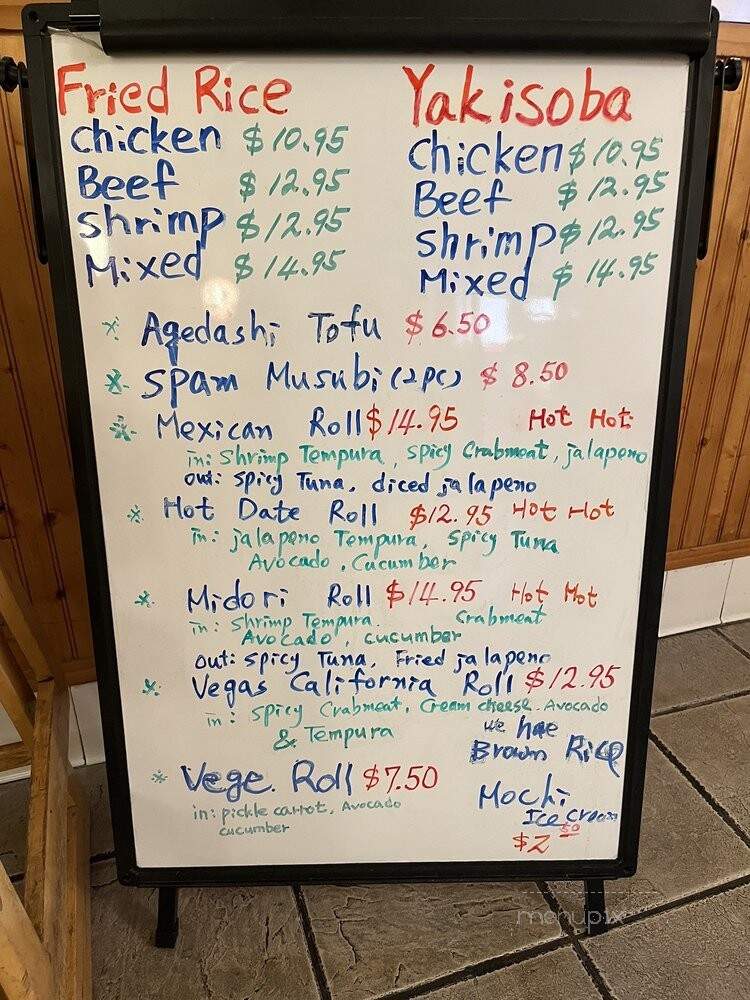 Fried Rice
chicken $10.95
Beef $12.95
shrimp $12.95
Mixed $14.95
Yakisoba
Chicken $10.95
Beef $12.95
shrimp $12.95
Mixed $14.95
* Agedashi Tofu $6.50
* Spam Musubi (2pc) $8.50
* Mexican Roll $14.95 Hot Hot
in: Shrimp Tempura, spicy Crabmeat, jalapeno
out: spicy Tuna, diced jalapeno
* Hot Date Roll $12.95 Hot Hot
in: jalapeno Tempura, Spicy Tuna
Avocado, Cucumber
* Midori Roll $14.95 Hot Hot
in: shrimp Tempura. Crabmeat
Avocado, cucumber
out: spicy Tuna, Fried jalapeno
* Vegas California Roll $12.95
in: spicy Crabmeat, Cream cheese. Avocado
& Tempura
we hae
Brown Rice
* Vege. Roll $7.50
in: pickle carrot, Avocado
cucumber
Mochi
Ice cream
$2 50
menupix